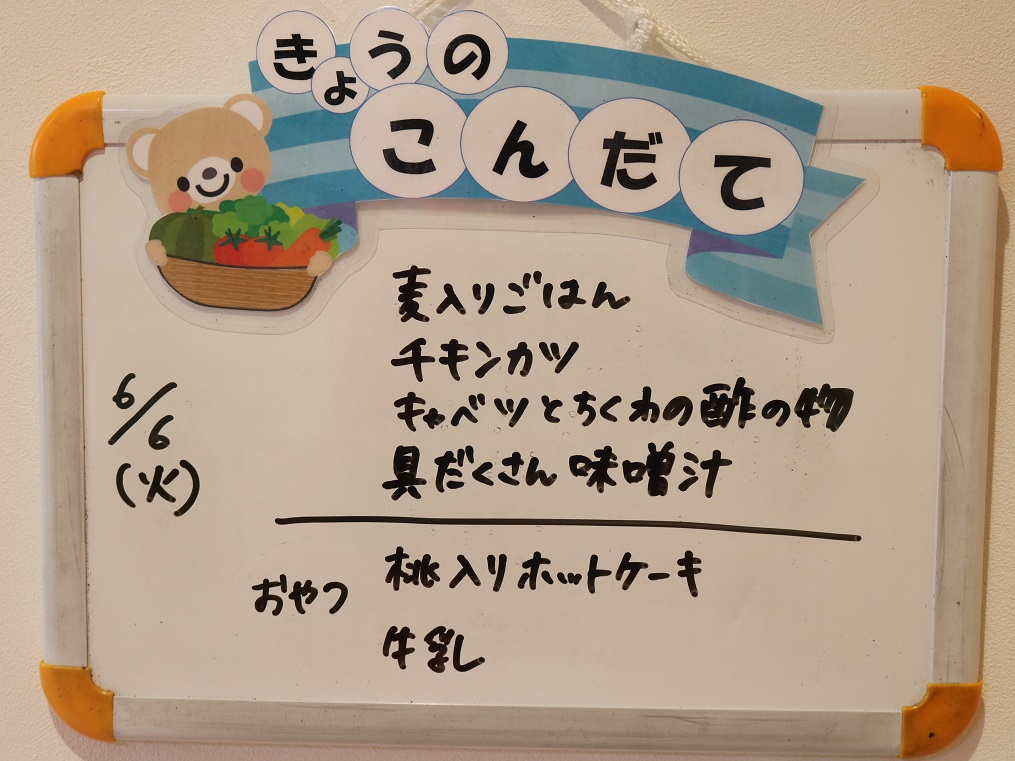 きょうの
こんだて
麦入りごはん
チキンカツ
キャベツとちくわの酢の物
具だくさん味噌汁
6/6
(火)
おやつ 桃入りホットケーキ
牛乳